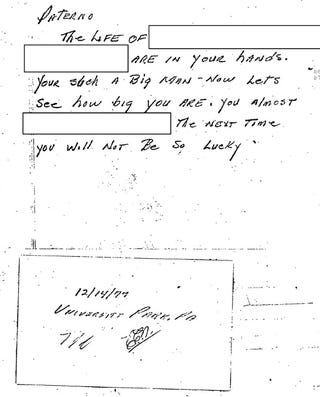 Paterno
The Life of
are in your hands.
Your such a Big Man - Now Lets
see how big you are. You almost
The next time
you will Not Be so Lucky
12/14/77
University Park, PA